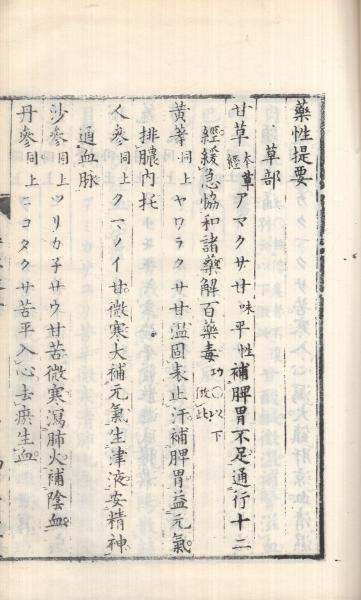 藥性提要
草部
甘草本草經アマクサ甘味平性補脾胃不足通行十二
經緩急協和諸藥解百藥毒功〇以下倣此
黄蓍同上ヤワラクサ甘温固表止汗補脾胃益元氣
排膿内托
人參同上クマノイ甘微寒大補元氣生津液安精神
通血脉
沙參同上ツリカ子サウ甘苦微寒瀉肺火補陰血
丹參同上ニコタクサ苦平入心去瘀生血